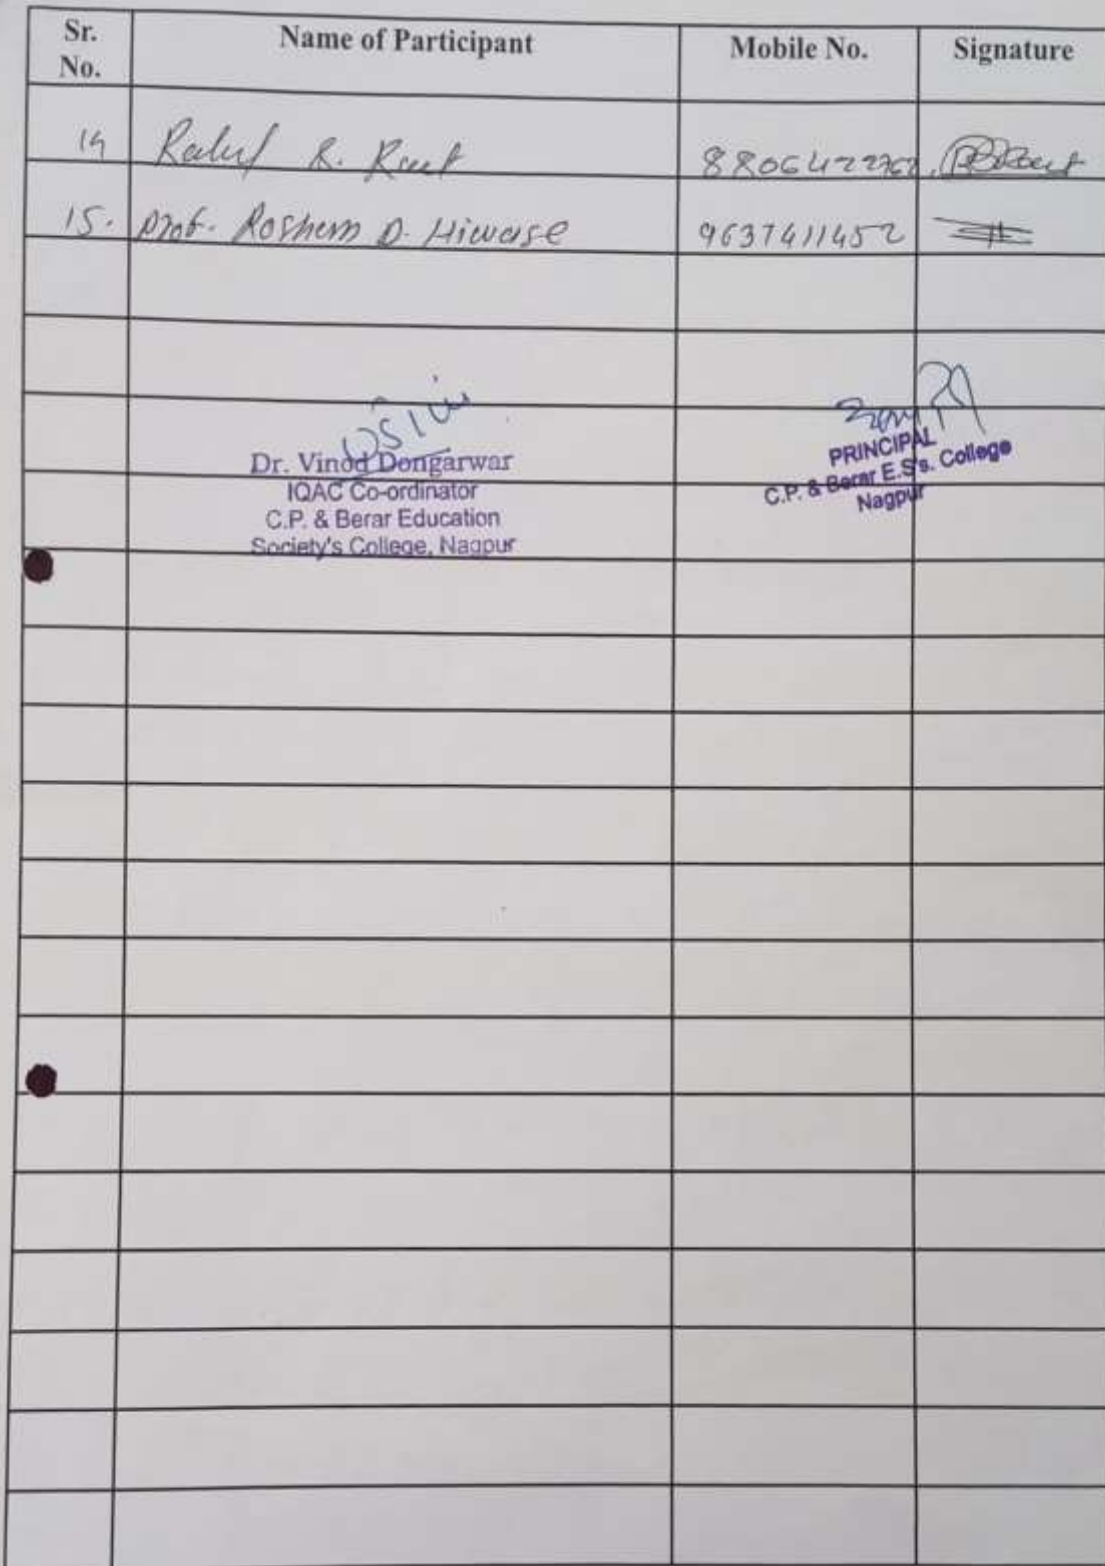 Sr. No. Name of Participant Mobile No. Signature
14 Rahul R. Raut
15. Prof. Roshan D. Hiwase 9637411452
Dr. Vinod Dongarwar
IQAC Co-ordinator
C.P. & Berar Education
Society's College, Nagpur
PRINCIPAL
C.P. & Berar E.S's. College
Nagpur